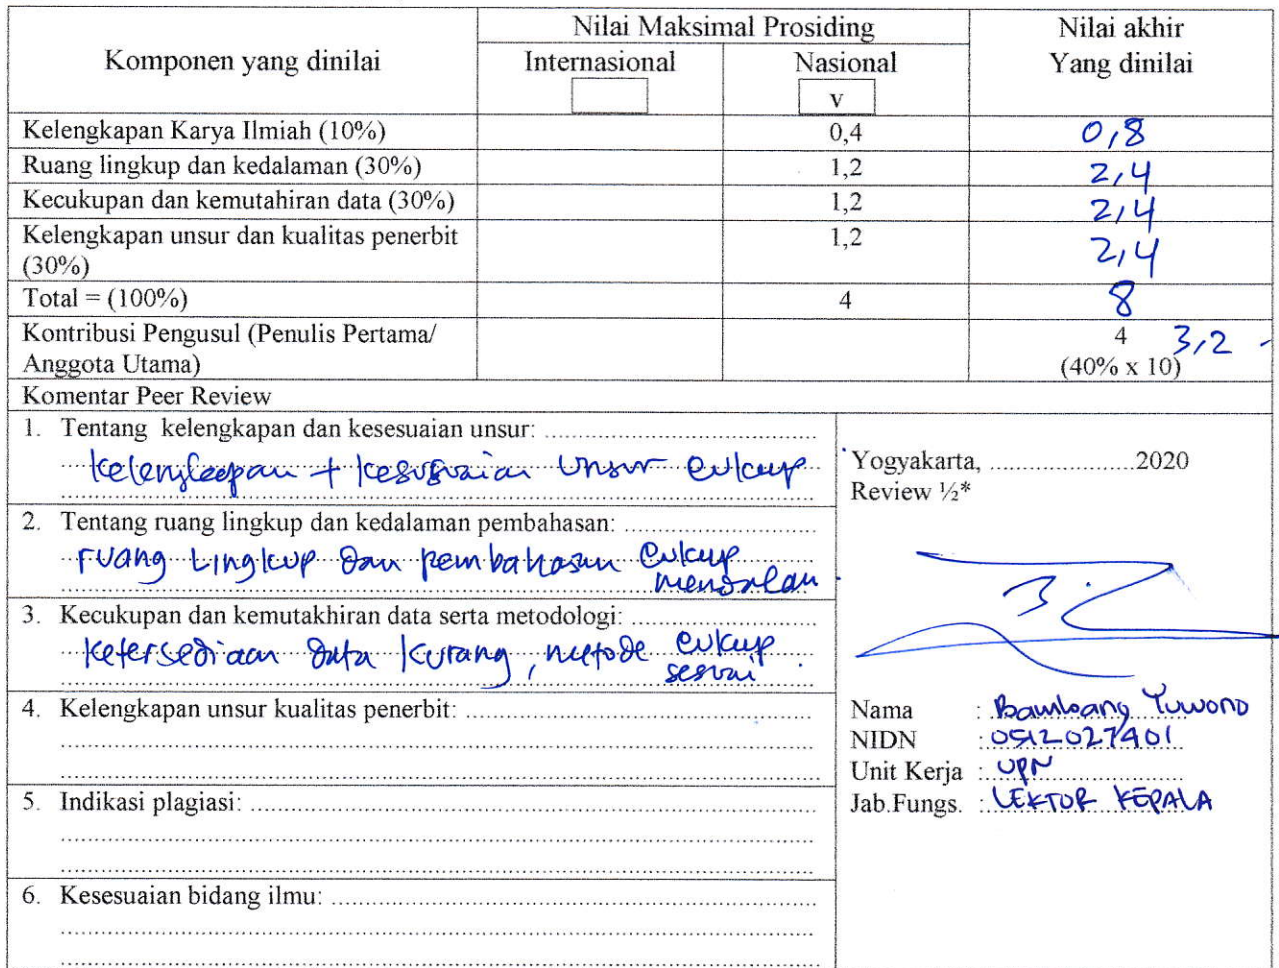 Komponen yang dinilai Nilai Maksimal Prosiding Nilai akhir Yang dinilai
Internasional Nasional
v
Kelengkapan Karya Ilmiah (10%) 0,4 0,8
Ruang lingkup dan kedalaman (30%) 1,2 2,4
Kecukupan dan kemutahiran data (30%) 1,2 2,4
Kelengkapan unsur dan kualitas penerbit 1,2 2,4
(30%)
Total = (100%) 4 8
Kontribusi Pengusul (Penulis Pertama/ 4 3,2 -
Anggota Utama) (40% x 10)
Komentar Peer Review
1. Tentang kelengkapan dan kesesuaian unsur:
Kelengkapan + kesesuaian unsur cukup
2. Tentang ruang lingkup dan kedalaman pembahasan:
ruang lingkup dan pembahasan cukup
mendalam
3. Kecukupan dan kemutakhiran data serta metodologi:
Ketersediaan data kurang, metode cukup
sesuai.
4. Kelengkapan unsur kualitas penerbit:
5. Indikasi plagiasi:
6. Kesesuaian bidang ilmu:
Yogyakarta, 2020
Review ½*
Nama : Bambang Yuwono
NIDN :
Unit Kerja : UPN
Jab.Fungs. : LEKTOR KEPALA